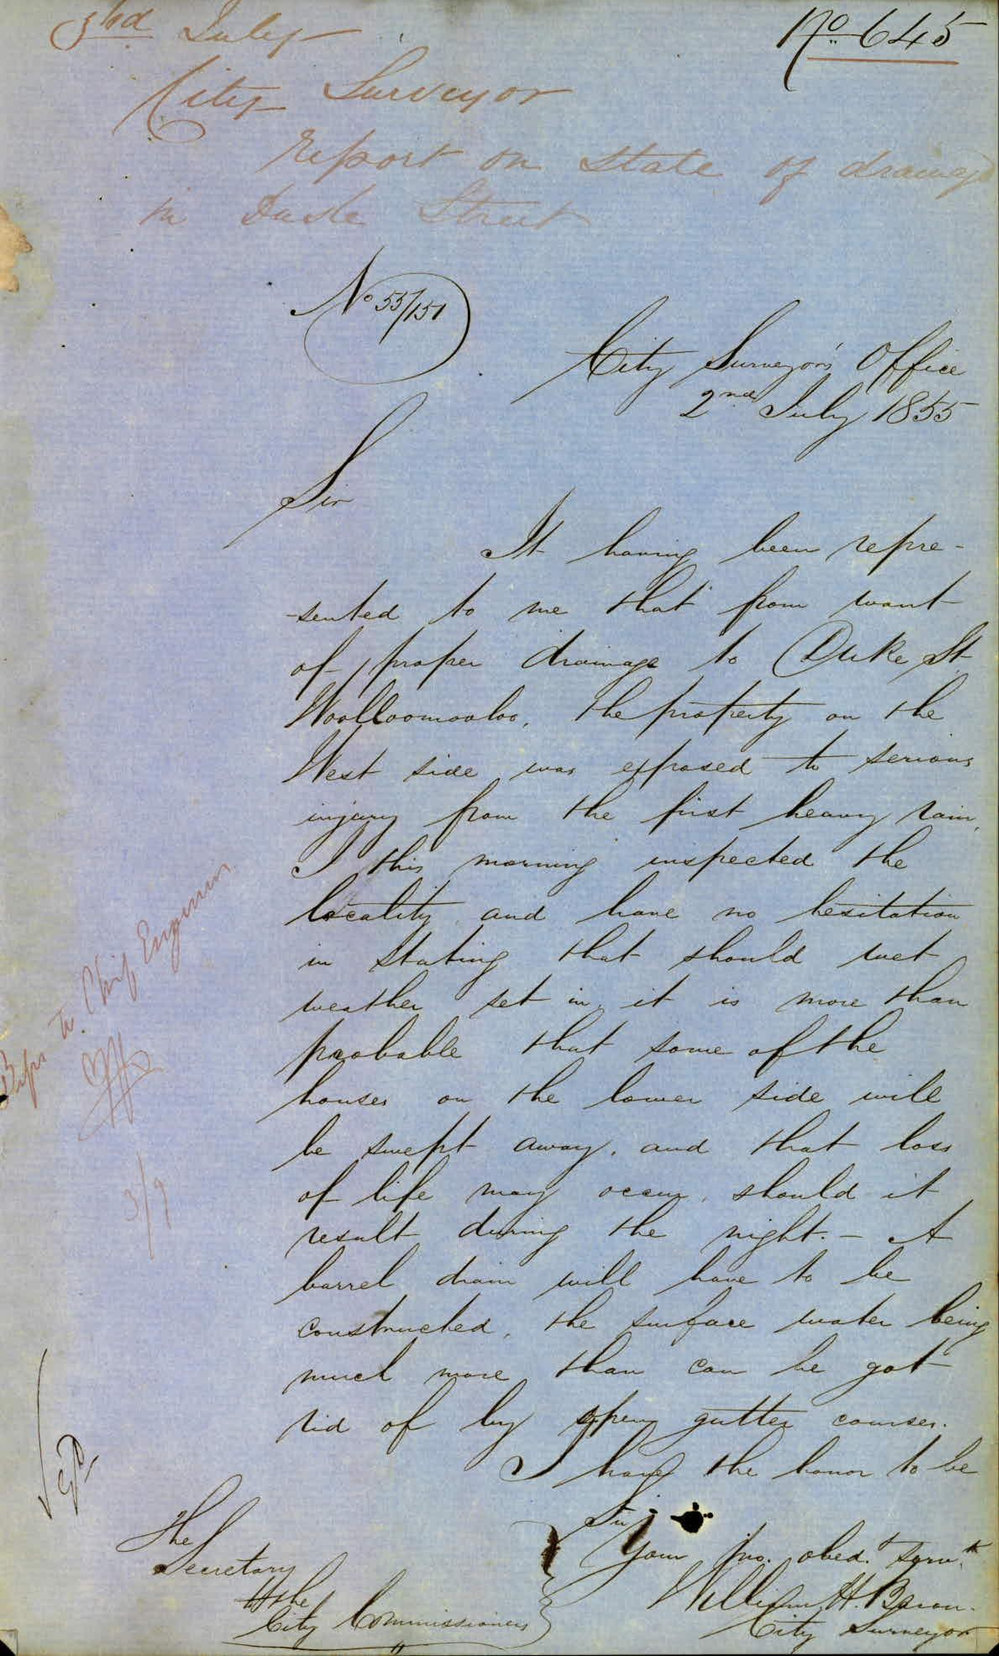 3rd July
No. 645
City Surveyor
report on state of drainage
in Duke Street
No 55/151
City Surveyor's Office
2nd July 1855
Sir
It having been repre-
-sented to me that from want
of proper drainage to Duke St
Woolloomooloo, the property on the
West side was exposed to serious
injury from the first heavy rain,
I this morning inspected the
locality and have no hesitation
in stating that should wet
weather set in, it is more than
probable that some of the
houses on the lower side will
be swept away, and that loss
of life may occur, should it
result during the night. – A
barrel drain will have to be
constructed, the surface water being
much more than can be got
rid of by open gutter courses.
I have the honor to be
Sir
Your mo. obed.t serv.t
William H. 
City Surveyor
The
Secretary
to the
City Commissioners
to Chief Engineer
3/9